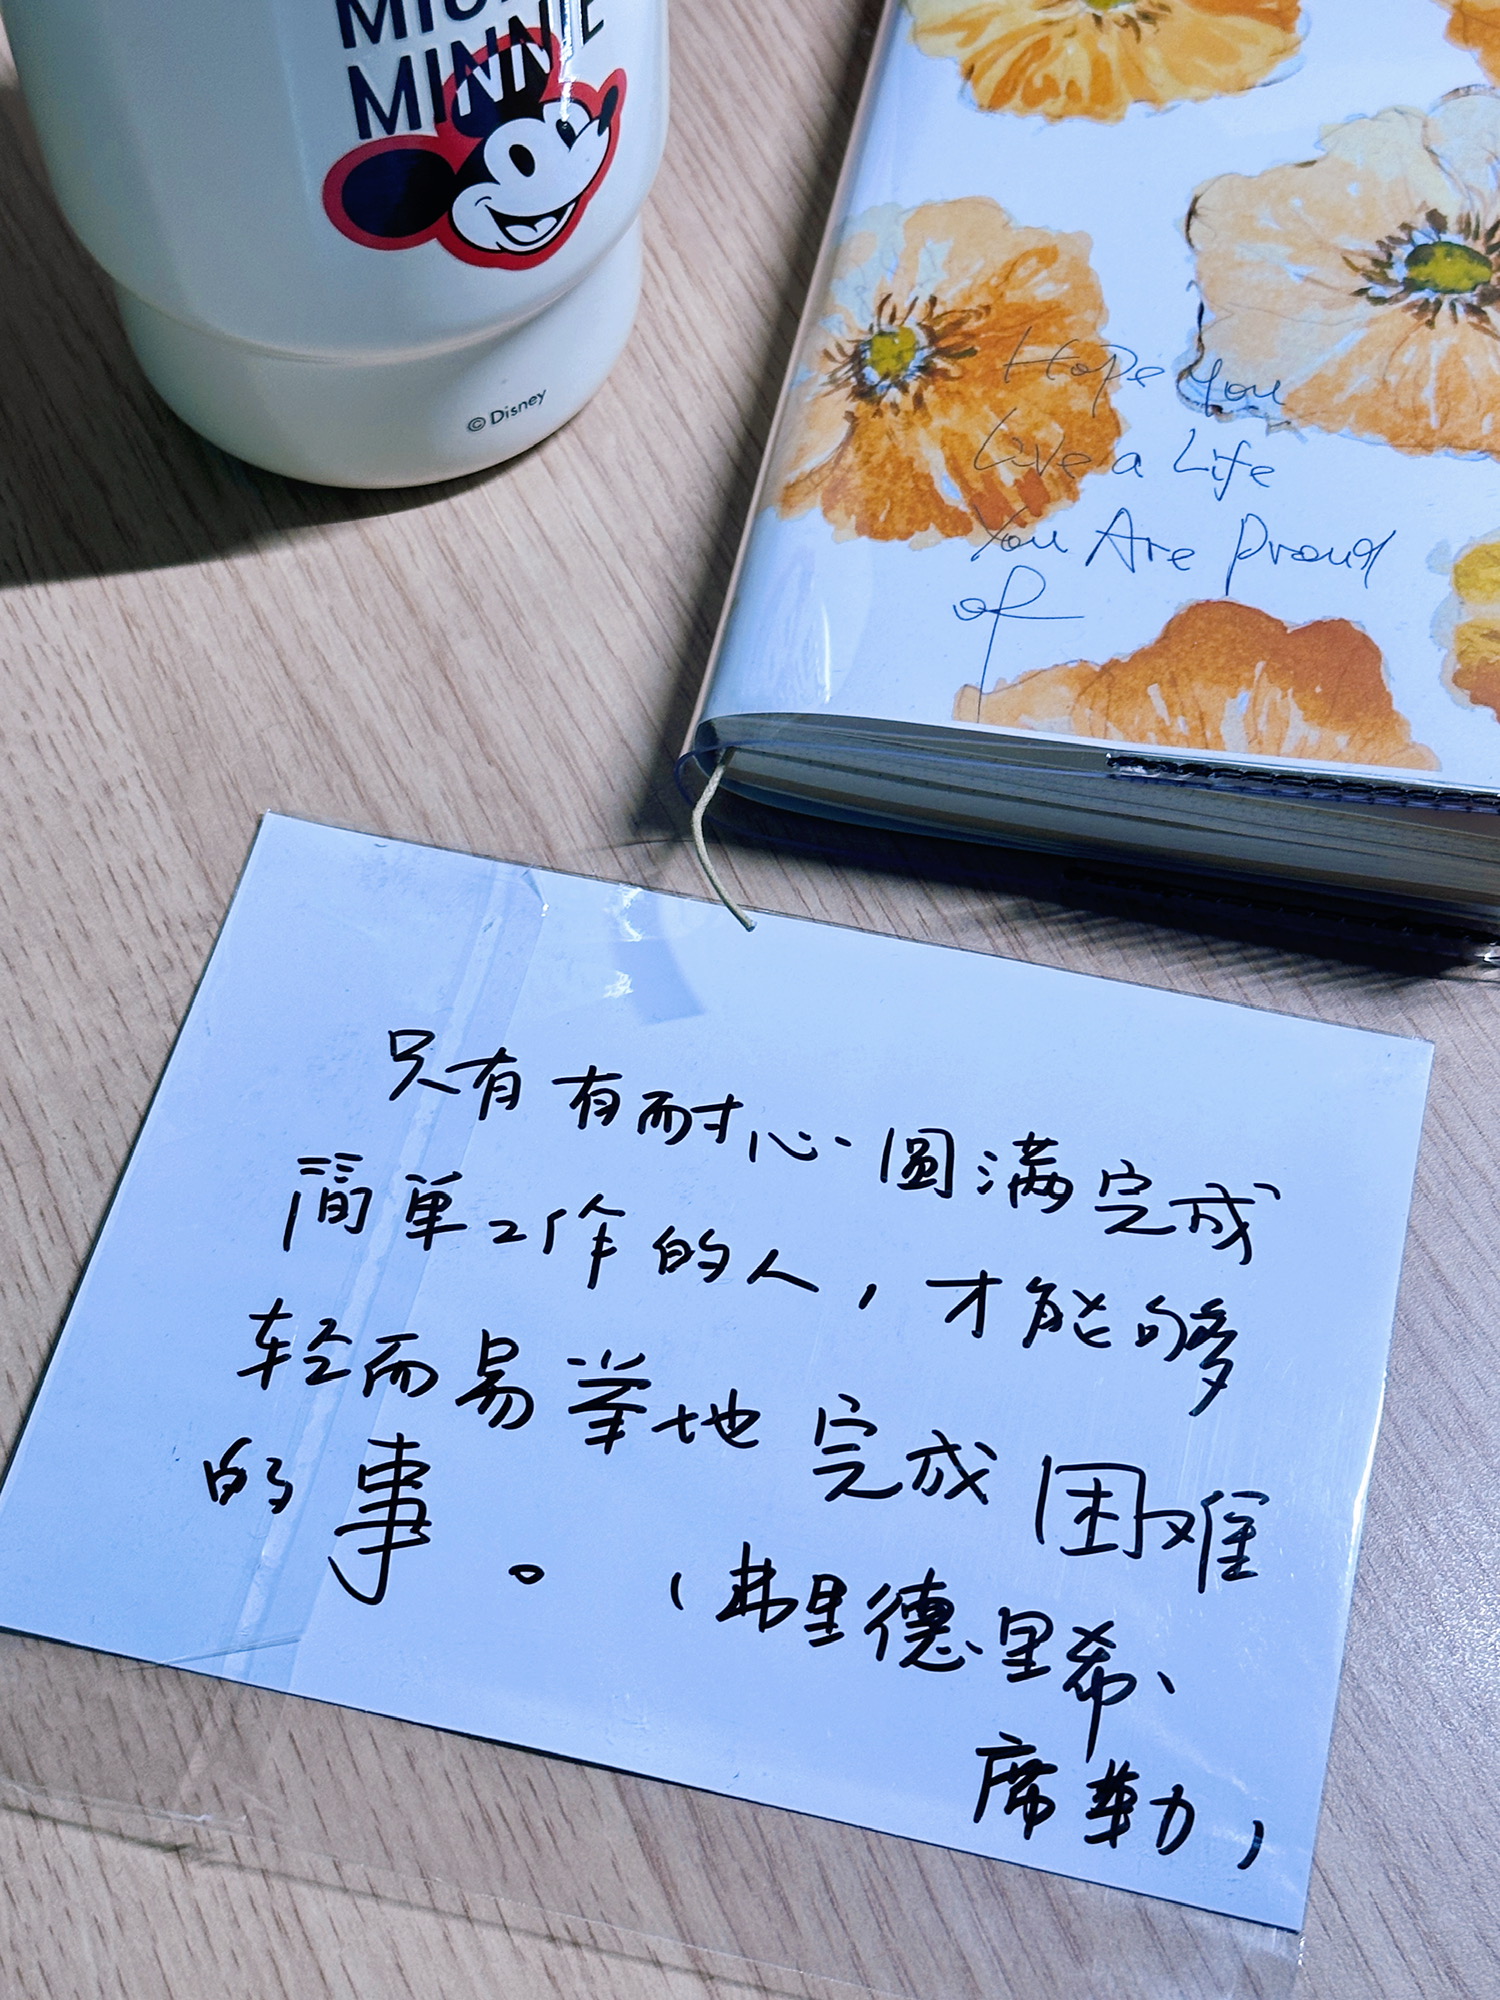 MINNIE
© Disney
Hope You
Live a Life
You Are Proud
of
只有有耐心圆满完成
简单工作的人，才能够
轻而易举地完成困难
的事。（弗里德里希·
席勒）